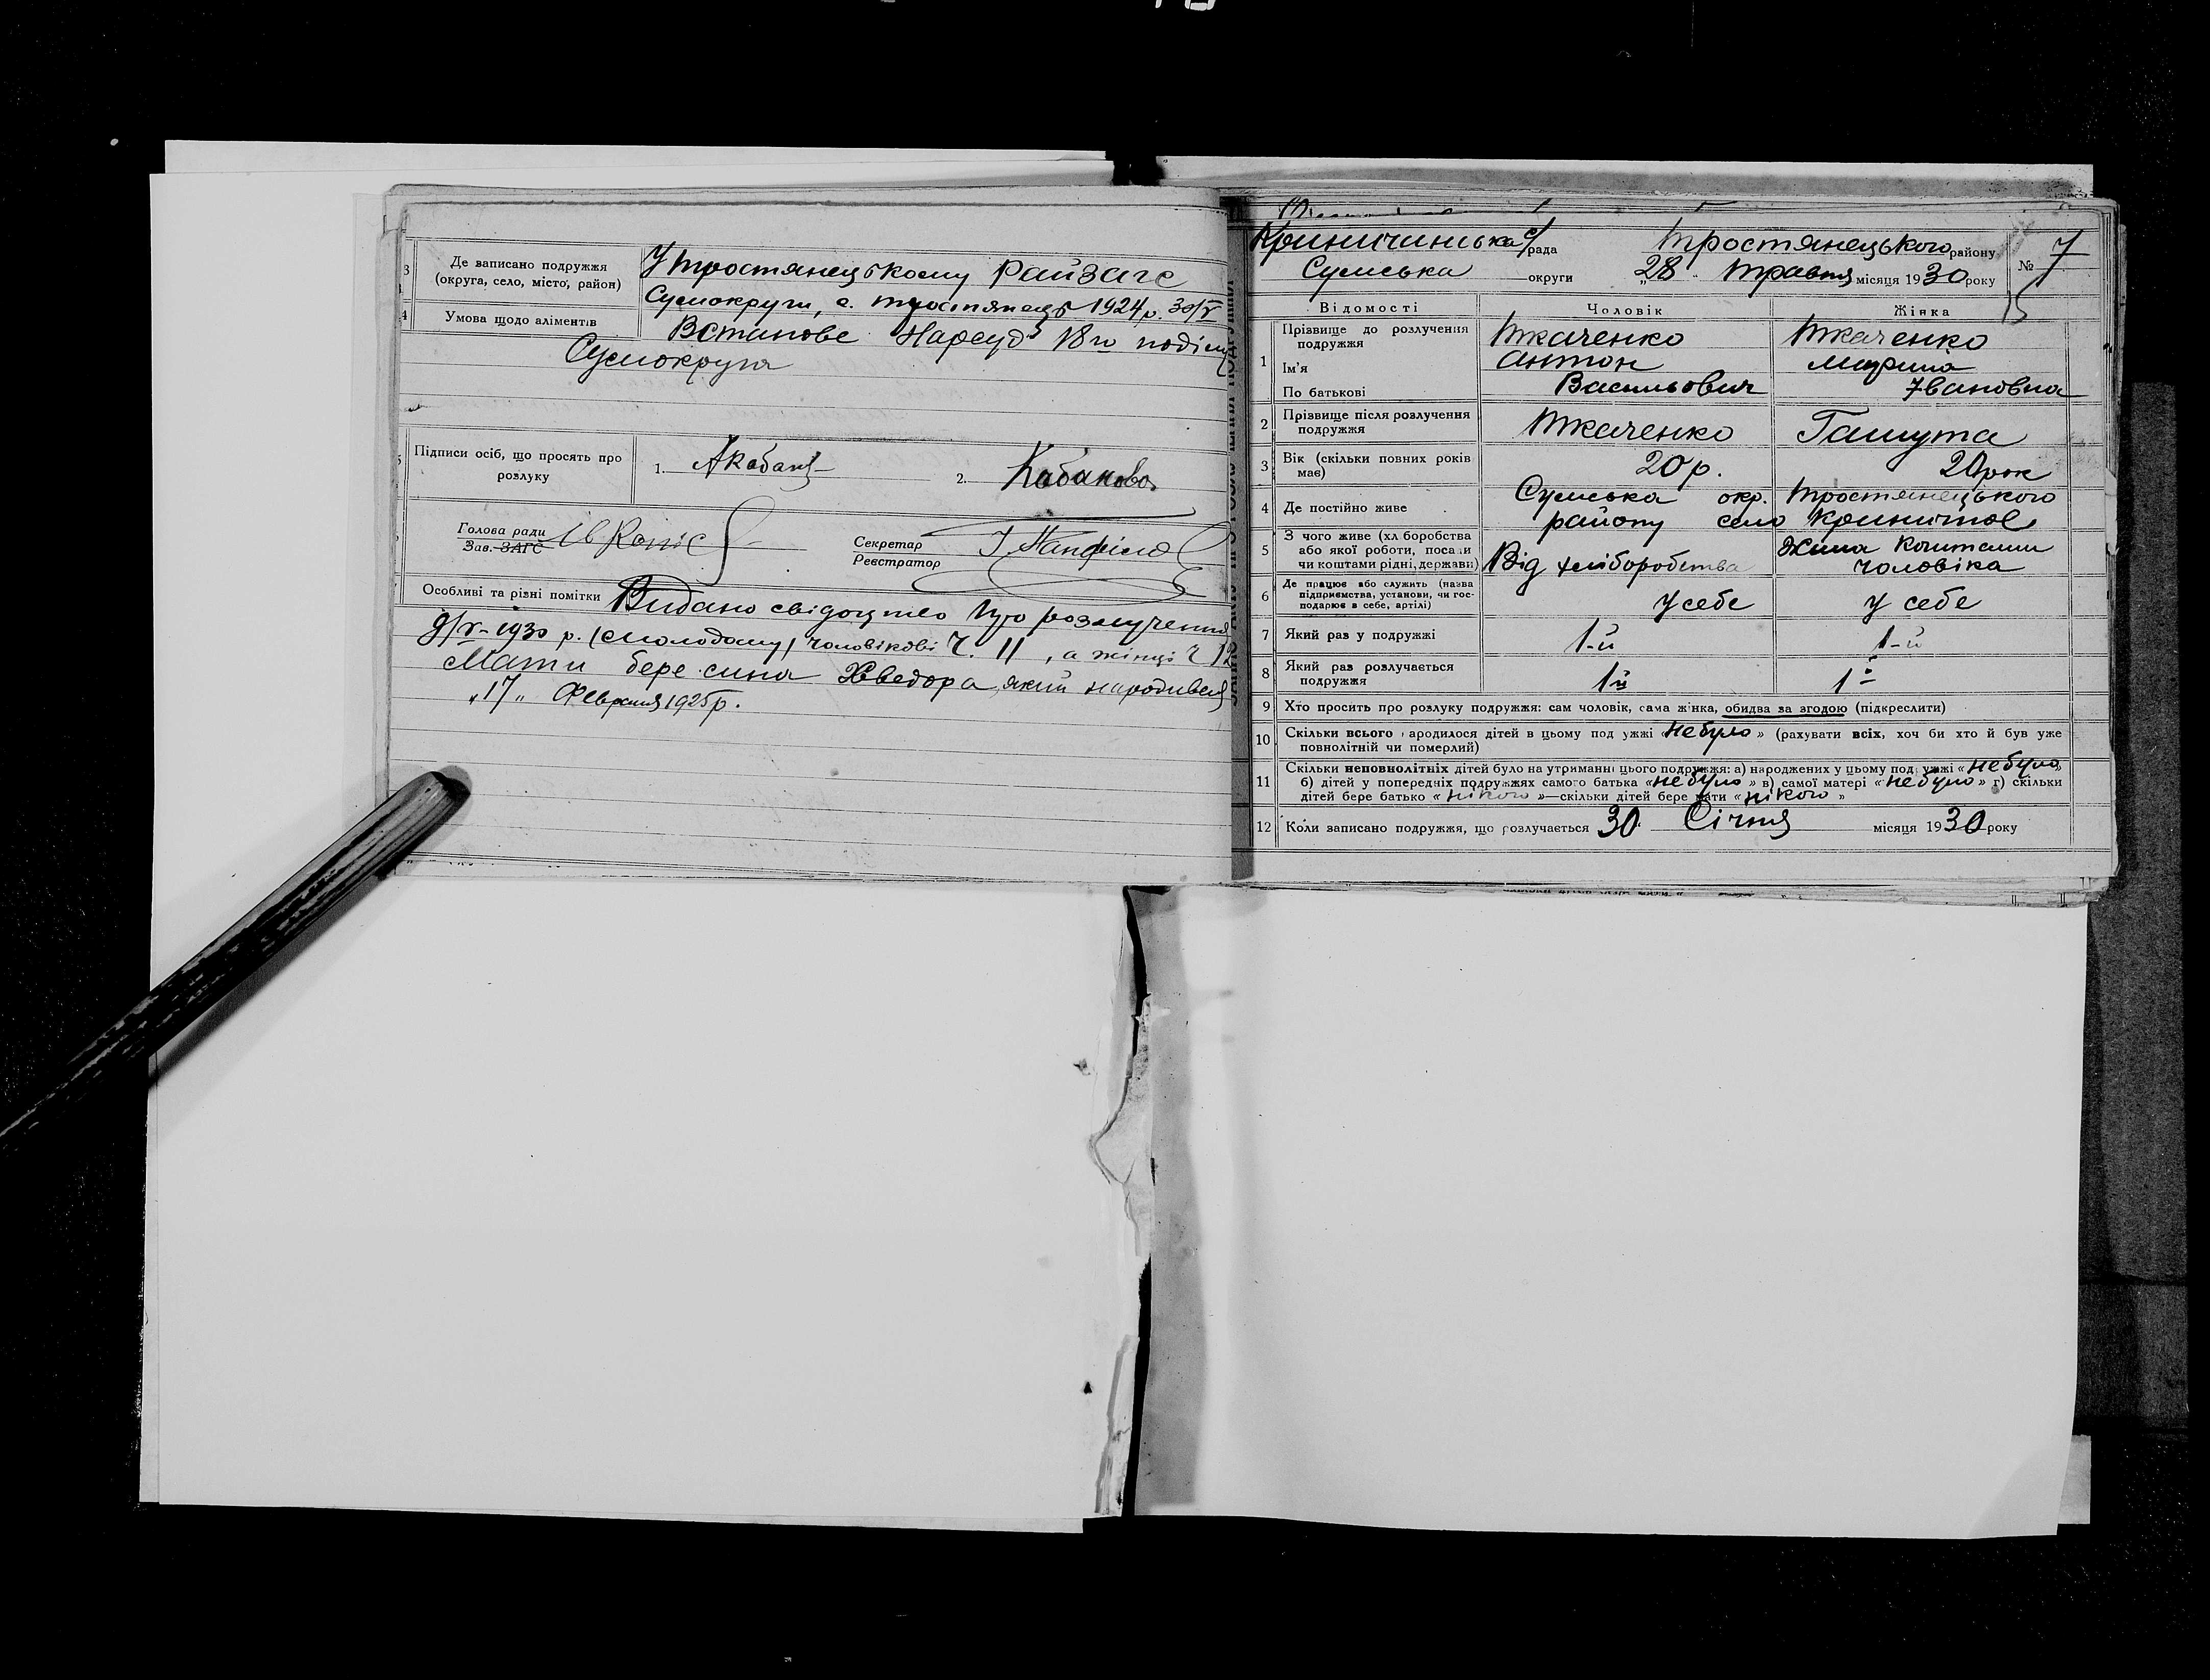 Де записано подружжя
(округа, село, місто, район)
У Тростянецькому райзагс
Сумокруги, с. Тростянець 1924 р. 30/V
4 Умова щодо аліментів
Встанове Нарсуд 18го поділу
Сумокруги
Підписи осіб, що просять про
розлуку
1.
2. Кабакова
Голова ради
Зав. ЗАГС
Секретар
Реєстратор
Особливі та різні помітки Видано свідоцтво про розлучення
9/V-1930 р. (молодому) чоловікові Ч. 11, а жінці Ч 12
Мати бере сина Хведора який народився
„17„ Февраля 1925 р.
Криничинська с/рада Тростянецького району № 7
Сумська округи „28„ Травня місяця 1930 року
15
Відомості Чоловік Жінка
1 Прізвище до розлучення подружжя Ткаченко Ткаченко
Ім'я Антон Марина
По батькові Васильович Івановна
2 Прізвище після розлучення подружжя Ткаченко Гашута
3 Вік (скільки повних років має) 20 р. 20 рок
4 Де постійно живе Сумська окр. Тростянецького
району село Криничне
5 З чого живе (хліборобства або якої роботи, посади чи коштами рідні, держави) Від хліборобства Жила коштами чоловіка
6 Де працює або служить (назва підприємства, установи, чи господарює в себе, артілі) У себе У себе
7 Який раз у подружжі 1-й 1-й
8 Який раз розлучається подружжя 1й 1й
9 Хто просить про розлуку подружжя: сам чоловік, сама жінка, обидва за згодою (підкреслити)
10 Скільки всього народилося дітей в цьому подружжі «небуло» (рахувати всіх, хоч би хто й був уже
повнолітній чи померлий)
11 Скільки неповнолітніх дітей було на утриманні цього подружжя: а) народжених у цьому подружжі «небуло»
б) дітей у попередніх подружжях самого батька «небуло» в) самої матері «небуло» г) скільки
дітей бере батько «нікого»—скільки дітей бере мати «нікого»
12 Коли записано подружжя, що розлучається 30 Січня місяця 1930 року